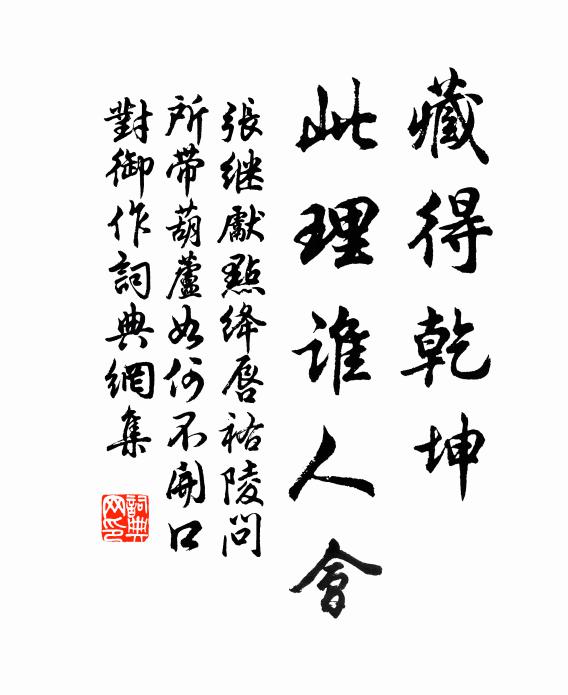 藏得乾坤
此理谁人會
張继獻點绛唇祐陵問
所带葫蘆如何不開口
對御作詞典網集
詞典网印